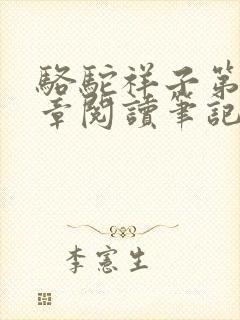 駱駝祥子第
章閱讀筆記
李憲生